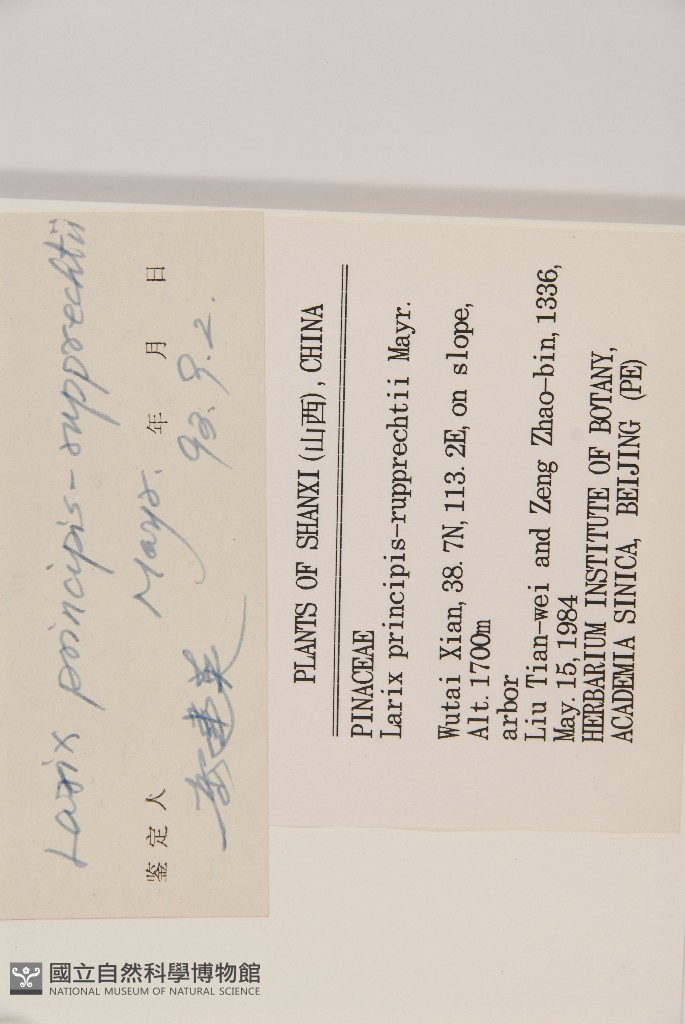 Larix principis-rupprechtii
Mayr.
鉴定人 年 月 日
93.9.2.
PLANTS OF SHANXI (山西), CHINA
PINACEAE
Larix principis-rupprechtii Mayr.
Wutai Xian, 38. 7N, 113. 2E, on slope,
Alt. 1700m
arbor
Liu Tian-wei and Zeng Zhao-bin, 1336,
May. 15, 1984
HERBARIUM INSTITUTE OF BOTANY,
ACADEMIA SINICA, BEIJING (PE)
國立自然科學博物館
NATIONAL MUSEUM OF NATURAL SCIENCE